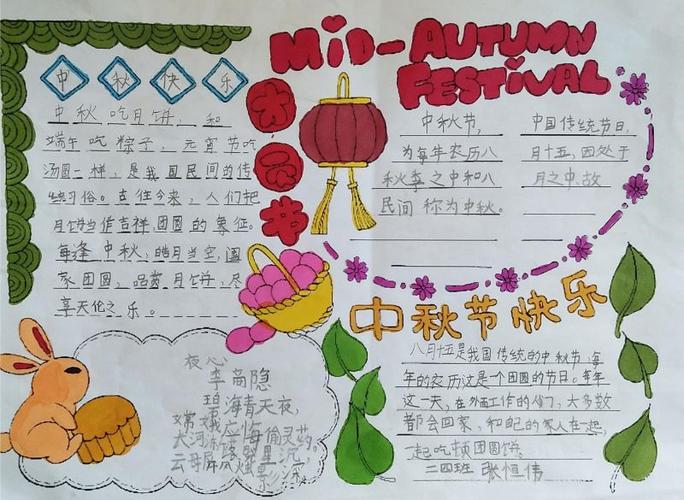 MiD-AUTUMN
FESTiVAL
中秋快乐
中秋吃月饼,和
端午吃粽子,元宵节吃
汤圆一样,是我国民间的传
统习俗。古往今来,人们把
月饼当作吉祥,团圆的象征。
每逢中秋,皓月当空,阖
家团圆,品尝月饼,尽
享天伦之乐。
中秋节, 中国传统节日,
为每年农历八 月十五,因处于
秋季之中和八 月之中,故
民间称为中秋。
中秋节快乐
夜心
李商隐
碧海青天夜,
嫦娥应悔偷灵药。
云母屏风烛影深
八月十五是我国传统的中秋节,每
年的农历这是一个团圆的节日。每年
这一天,在外面工作的人们,大多数
都会回家,和自己的家人在一起,
一起吃顿团圆饼。
二四班 张恒伟